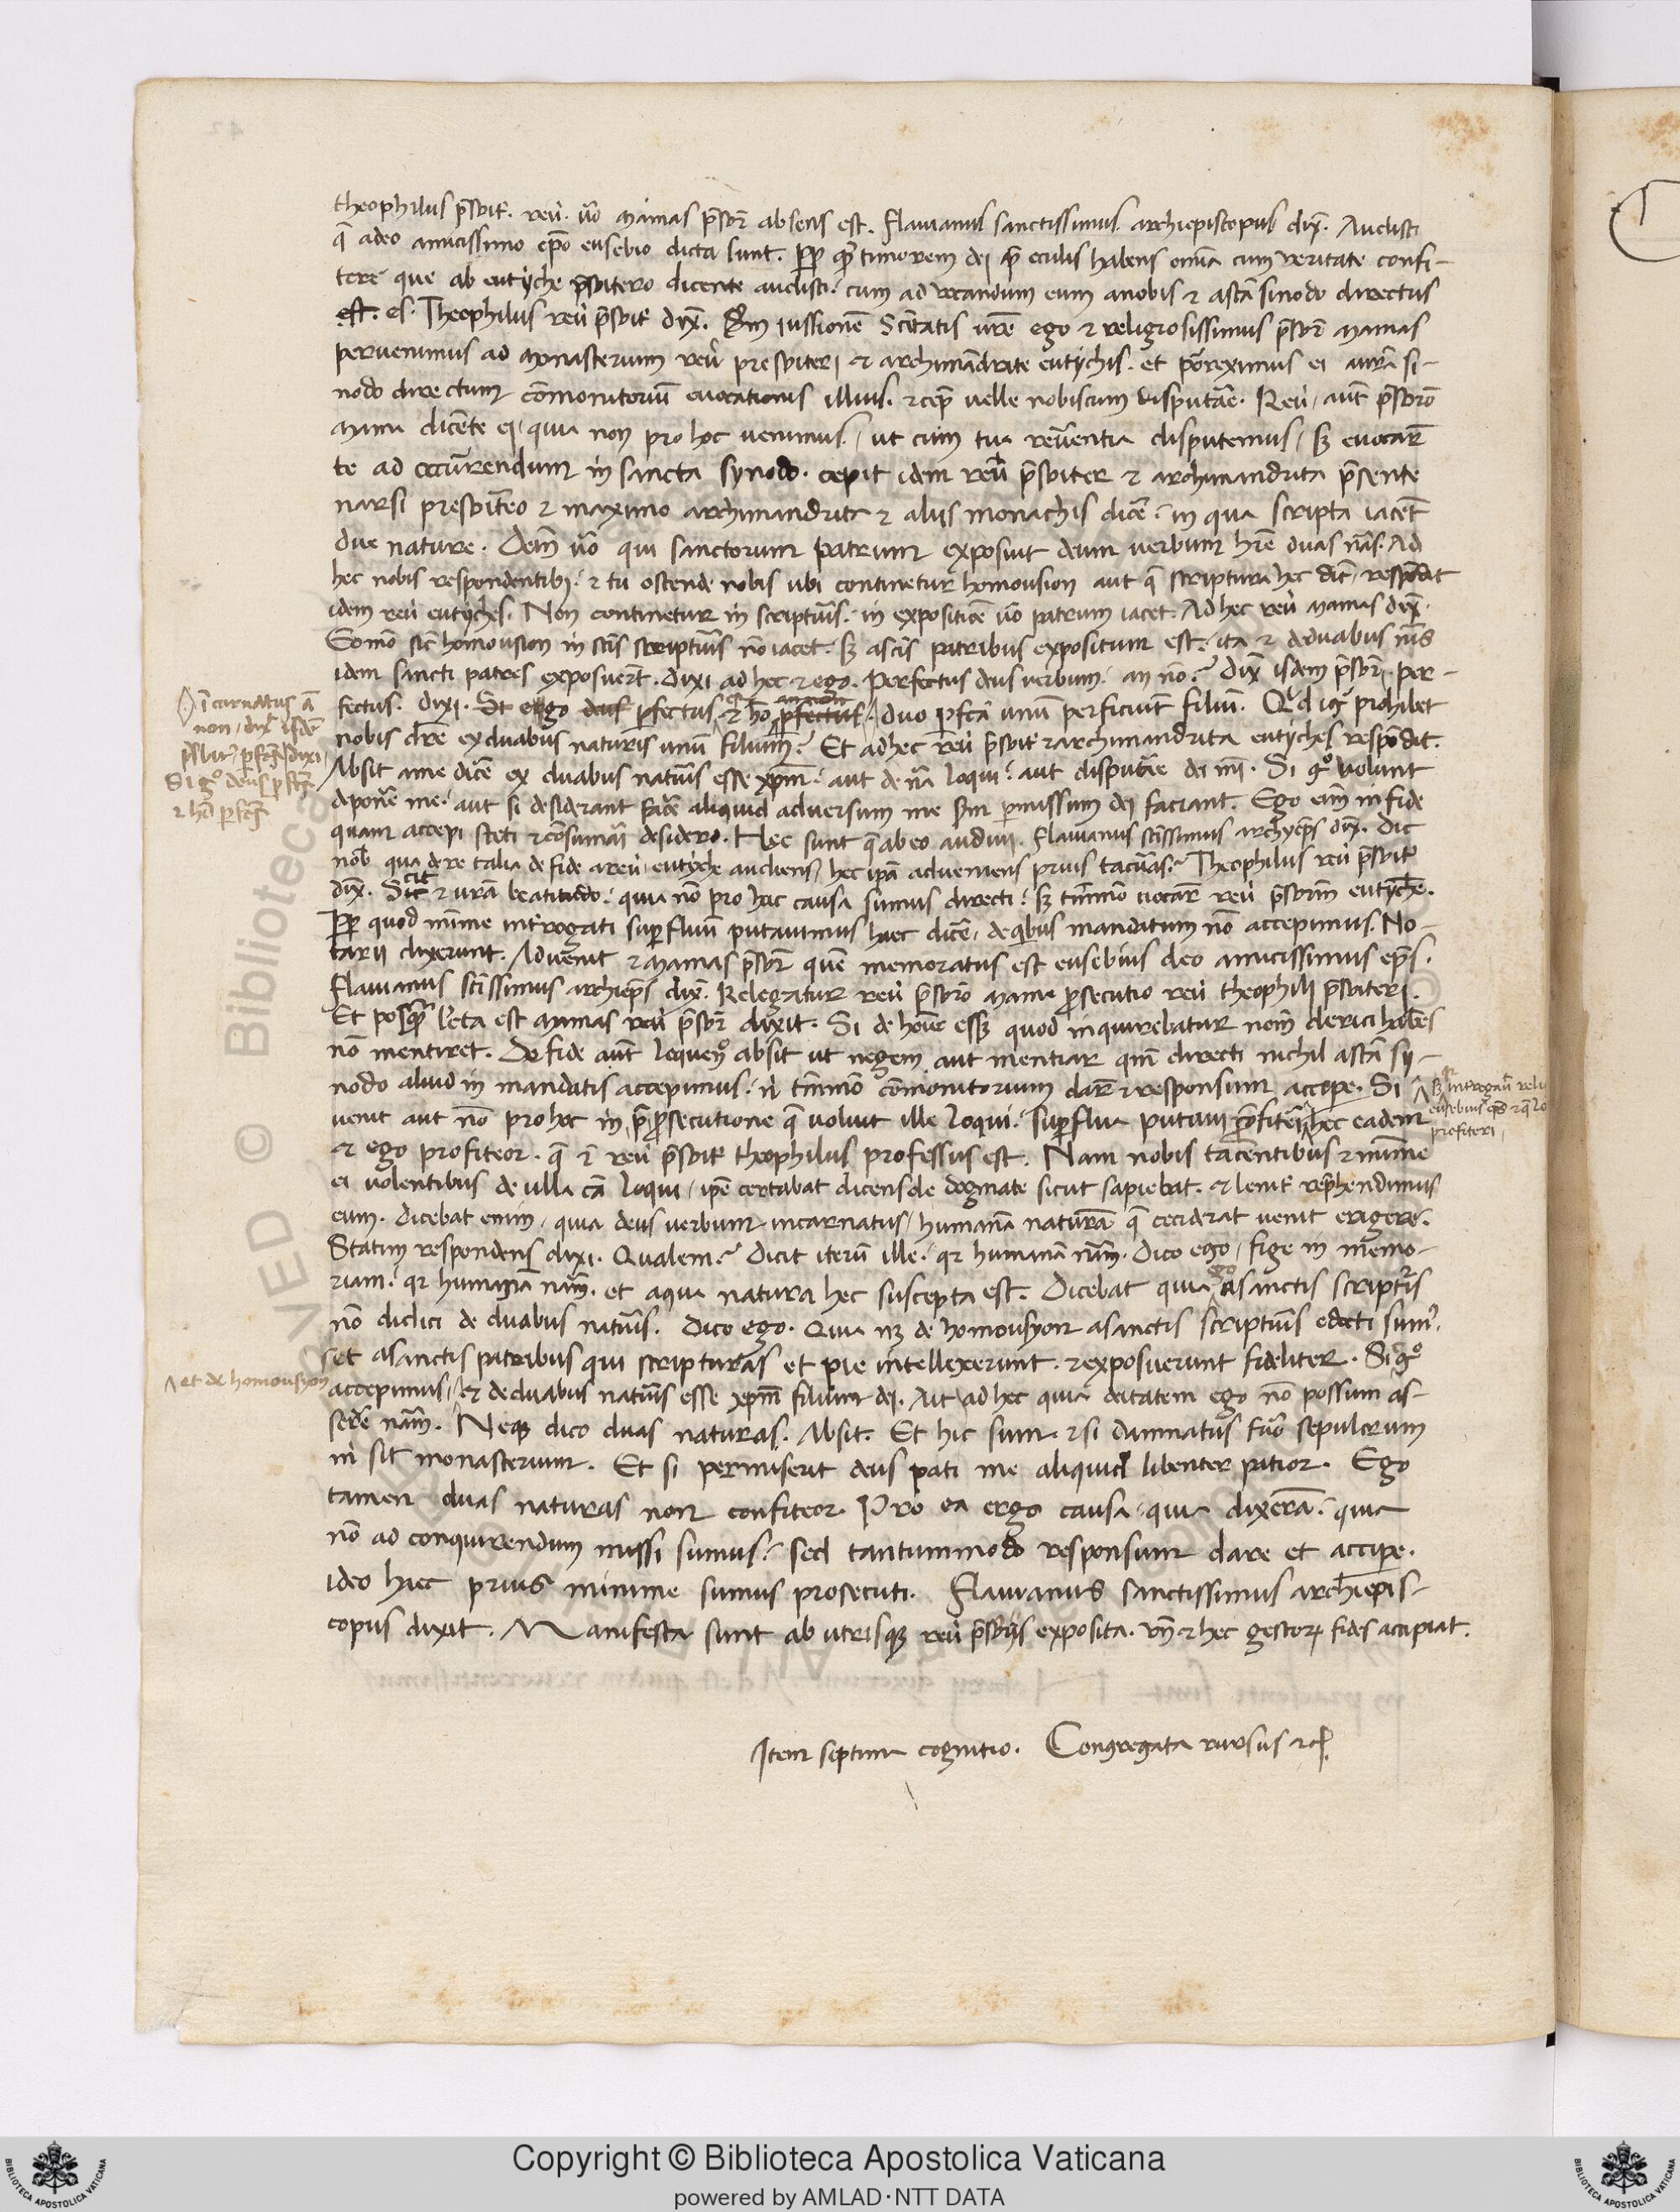 theophilus p̄sbit̄. reū. ūo mamas p̄sbr̄ absens est. Flauianus sanctissimus archiepiscopus dix̄. Audisti
q̄ adeo amicissimo ep̄o eusebio dicta sunt. timorem dei oculis habens omīa cum veritate confi-
tere que ab eutyche p̄sbitero dicente audisti. cum ad vocandum eum anobis ⁊ asctā sinodo directus
est. es. Theophilus reū p̄sbit̄ dix̄. iussionē Scītatis ur̄e ego ⁊ religiosissimus p̄sbr̄ mamas
peruenimus ad monasterium reū presbiteri ⁊ archimādrite eutychis. et porreximus ei aur̄a si-
nodo directum cōmonitoriū euocationis illius. ⁊cep̄ uelle nobiscum disputar̄e. Reū. aut̄ p̄sbr̄o
mama dicēte ei. quia non pro hoc uenimus, ut cum tua reūentia disputemus, sʒ euocar̄
te ad occur̄rendum in sancta synodo. cepit idem reū p̄sbiter ⁊ archimandrita p̄sente
narsi presbiteo ⁊ maximo archimandrita ⁊ aliis monachis dicē. in qua scripta iacēt
due nature. Deīn ūo qui sanctorum patrum exposuit deum verbum hr̄e duas nās. Ad
hec nobis respondentibꝫ. ⁊ tu ostende nobis ubi continetur homousion aut q̄ scriptura hec dic̄. respōdit
idem reū eutyches. Non continetur in scriptuīs. in expositiōe ūo patrum iacet. Ad hec reū mamas dix̄.
Eomō sic̄ homousion in sctīs scriptuīs nō iacet. sʒ ascīs patribus expositum est. ita ⁊ deduabus nīs
idem sancti patres exposuer̄t. dixi ad hec ⁊ ego. Perfectus deus verbum. an nō? dix̄ isdem p̄sbr̄. per-
fectus. dixi. Si ergo deus p̄fectus ⁊ hō p̄fectus. an non duo p̄fc̄a unū perficiūt filiū. Qd igr̄ prohibet
nobis dic̄re ex duabus naturis unū filium? Et ad hec reū p̄sbit̄ ⁊ archimandrita eutyches respōdit.
Absit ame dicē ex duabus natuīs esse xp̄m. aut de nā loqui. aut disputāe dei mī. Si g̊ uolunt
deponē me. aut si desiderant facē aliquid aduersum me sm̄ p̄missum dei faciant. Ego eīm in fide
quam accepi steti ⁊ cōsumari desidero. Hec sunt q̄ ab eo audiui. Flauianus sctīssimus archyep̄s dix̄. Dic
nob̄ qua de re talia de fide areū eutyche audiens, hec ip̄a adueniens prius tacuīas? Theophilus reū p̄sbit̄
dix̄. Scit ⁊ ur̄a beatitudo. quia nō pro hac causa sumus directi. sʒ tm̄mō uocar̄ reū p̄sbr̄m eutychē.
quod mīme int̄rogati sup̄fluū putauimus haec dicē. de q̄bus mandatum nō accepimus. No-
tarii dixerunt. Aduenit ⁊ mamas p̄sbr̄ quē memoratus est eusebius deo amicissimus ep̄s.
Flauianus sctīssimus archiep̄s dix̄. Relegatur reū p̄sbr̄o mama p̄secutio reū theophili p̄sbiteri.
Et posq̄ Lc̄ta est mamas reū p̄sbr̄ dixit. Si de hoīe essʒ quod inquirebatur nom̄ clerici habēs
nō mentiret. De fide aūt loquens absit ut negem aut mentiar qm̄ directi nichil asctā sy-
nodo aliud in mandatis accepimus. ni tm̄mō cōmonitorium dar̄ ⁊ responsum accipe. Si
uenit aut nō pro hoc in p̄secutione q̄ uoluit ille loqui. sup̄flua putaui p̄fiteri hec eadem
⁊ ego profiteor. q̄ ⁊ reū p̄sbit̄ theophilus professus est. Nam nobis tacentibus ⁊ mīme
ei uolentibus de ulla cā loqui, ipē certabat dicens de dogmate sicut sapiebat. ⁊ lenit̄ rep̄hendimus
eum. dicebat enim, quia deus uerbum incarnatus, humanā naturā q̄ ceciderat uenit erigere.
Statim respondens dixi. Qualem? Dicit iterū ille. qr̄ humanā nām. Dico ego, fige in memo-
riam. qr̄ humanā nām. et aqua natura hec suscepta est. Dicebat quia ego asanctis scriptr̄is
nō didici de duabus natuīs. Dico ego. Quia nʒ de homousyon asanctis scriptuīs edocti sum̄.
set asanctis patribus qui scripturas et pie intellexerunt. ⁊ exposuerunt fideliter. Si g̊
accepimus, ⁊ de duabus natuīs esse xp̄m filium dei. Ait ad hec quia deitatem ego nō possum as-
serē nām. Neqʒ dico duas naturas. Absit. Et hic sum. ⁊ si damnatus fuō sepulcrum
m̄ sit monasterium. Et si permiserit deus pati me aliquid libenter patior. Ego
tamen duas naturas non confiteor. Pro ea ergo causa, quia dixerā. quia
nō ad conquirendum missi sumus. sed tantummodo responsum dare et accipe.
ideo haec prius minime sumus prosecuti. Flauianus sanctissimus archiepis-
copus dixit. Manifesta sunt ab utrisqʒ reū p̄sbr̄is exposita. un̄ ⁊ hec gestoꝝ fides accipiat.
Item septima cognitio. Congregata rursus ⁊c̄.
īcarnatus ā
non, dix̄ isdē
p̄sbr̄, p̄fc̄s, dixi,
Si g̊ deus p̄fc̄s
⁊ hō p̄fc̄s
et de homousyon
sʒ qr̄ intrrogaū
eusebius ep̄s
profiteri,
Copyright © Biblioteca Apostolica Vaticana
powered by AMLAD·NTT DATA
BIBLIOTECA APOSTOLICA VATICANA
BIBLIOTECA APOSTOLICA VATICANA